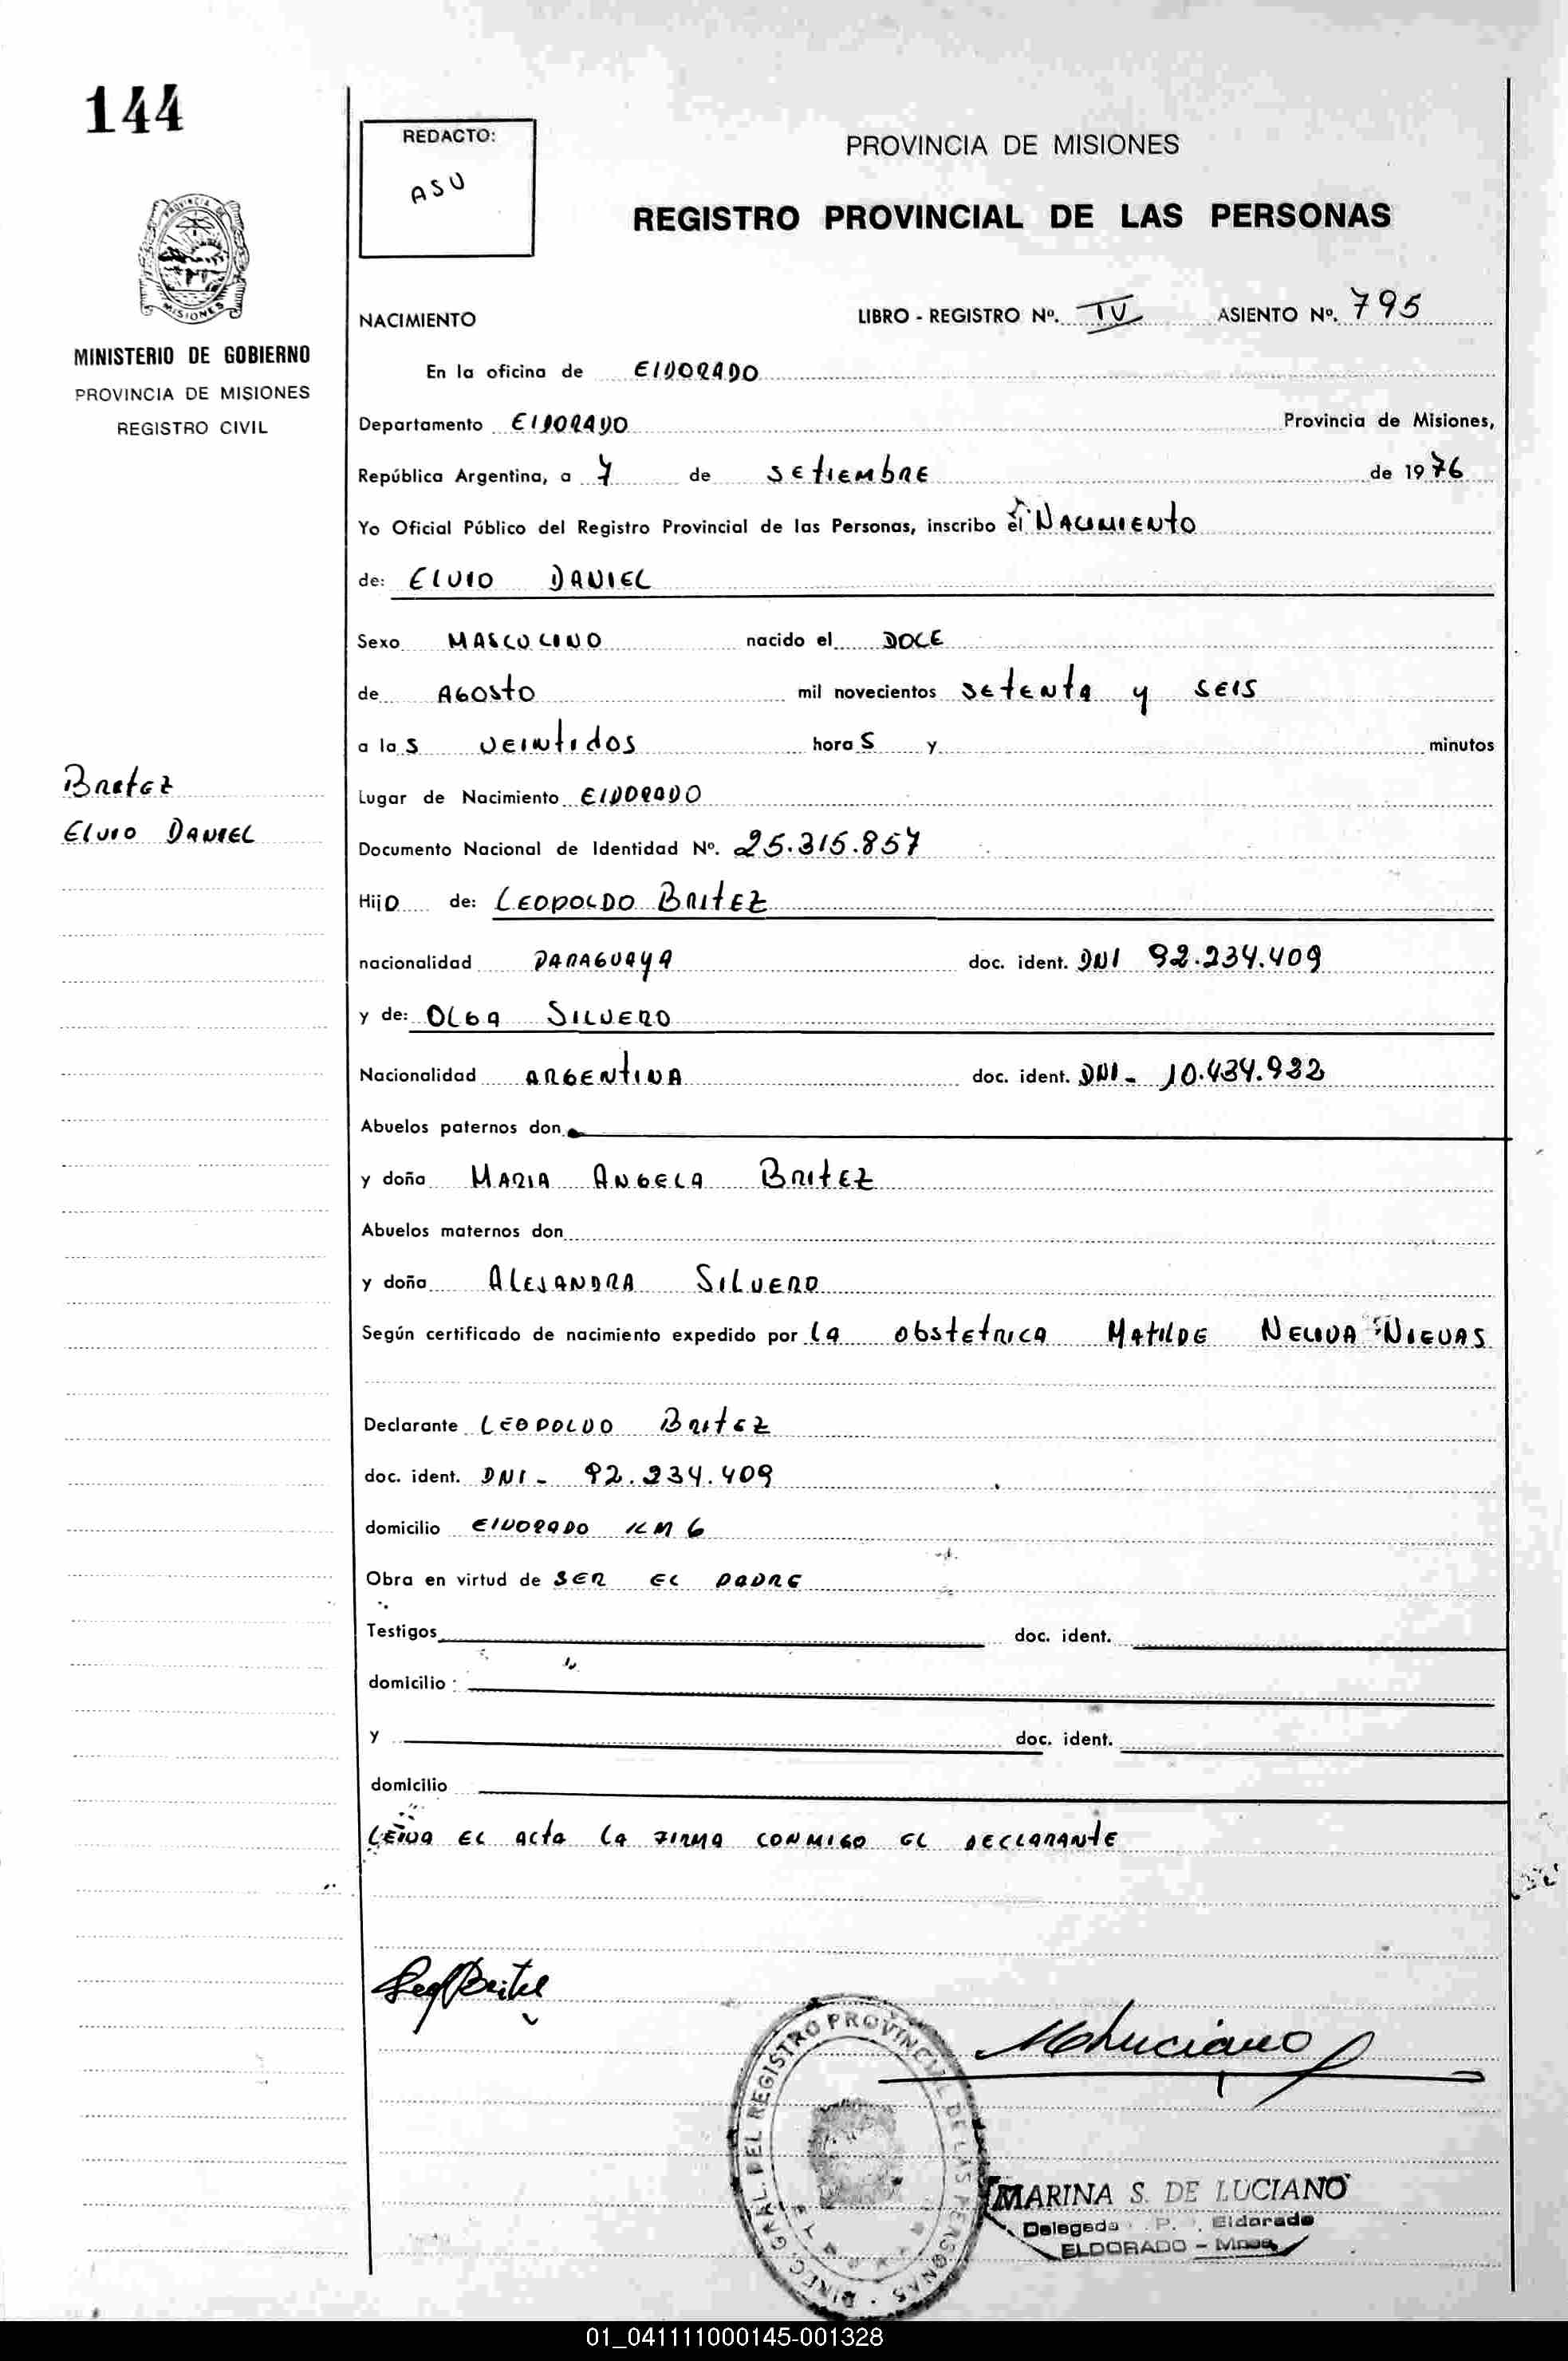 144
REDACTO:
ASU
PROVINCIA DE MISIONES
REGISTRO PROVINCIAL DE LAS PERSONAS
PROVINCIA DE
MISIONES
MINISTERIO DE GOBIERNO
PROVINCIA DE MISIONES
REGISTRO CIVIL
NACIMIENTO
LIBRO - REGISTRO Nº. IV ASIENTO Nº. 795
En la oficina de ElDORADO
Departamento ElDORADO Provincia de Misiones,
República Argentina, a 7 de setiembre de 1976
Yo Oficial Público del Registro Provincial de las Personas, inscribo el NACIMIENTO
de: ELVIO DANIEL
Sexo MASCULINO nacido el DOCE
de AGOSTO mil novecientos setenta y SEIS
a las veintidos horas y minutos
Britez
Elvio DANIEL
Lugar de Nacimiento ElDORADO
Documento Nacional de Identidad Nº. 25.315.857
Hijo de: LEOPOLDO BRITEZ
nacionalidad PARAGUAYA doc. ident. DNI 92.234.409
y de: OLGA SILVERO
Nacionalidad ARGENTINA doc. ident. DNI - 10.434.932
Abuelos paternos don
y doña MARIA ANGELA BRITEZ
Abuelos maternos don
y doña ALEJANDRA SILVERO
Según certificado de nacimiento expedido por la obstetrica MATILDE NELIDA NIEVAS
Declarante LEOPOLDO Britez
doc. ident. DNI - 92.234.409
domicilio ElDORADO KM 6
Obra en virtud de SER EL PADRE
Testigos doc. ident.
domicilio :
y doc. ident.
domicilio
LEIDA EL acta la FIRMA CONMIGO EL DECLARANTE
Britez
MdeLuciano
DIREC. GRAL. DEL REGISTRO PROVINCIAL DE LAS PERSONAS
MARINA S. DE LUCIANO
Delegada Eldorado
ELDORADO - Mnes.
01_041111000145-001328